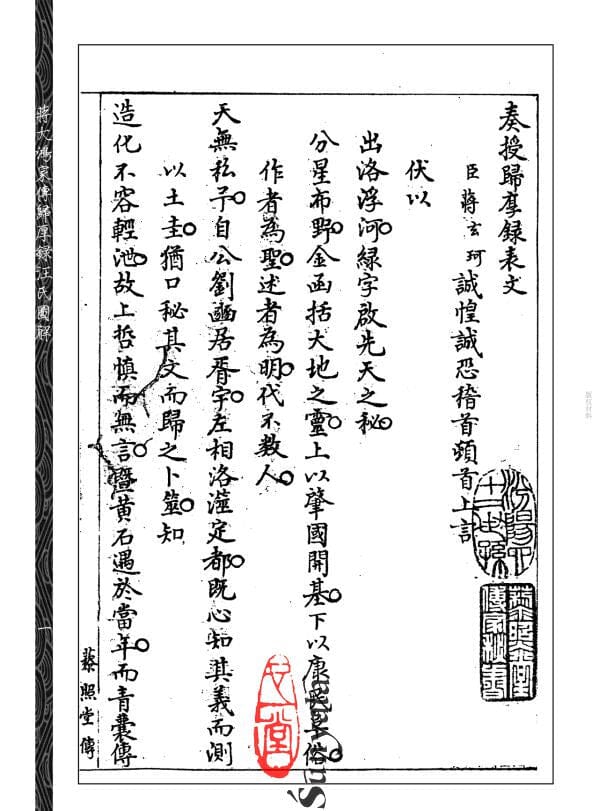 奏授歸厚錄表文
臣蔣玄珂誠惶誠恐稽首頓首上言
伏以
出洛浮河綠字啟先天之秘
分星布野金函括大地之靈上以肇國開基下以康民阜俗
作者為聖述者為明代不數人
天無私予自公劉豳居胥宇左相洛瀍定都既心知其義而測
以土圭猶口秘其文而歸之卜筮知
造化不容輕泄故上哲慎而無言暨黄石遇於當年而青囊傳
蔡照堂傳
蔣大鴻家傳歸厚錄汪氏圖解
一
版权材料